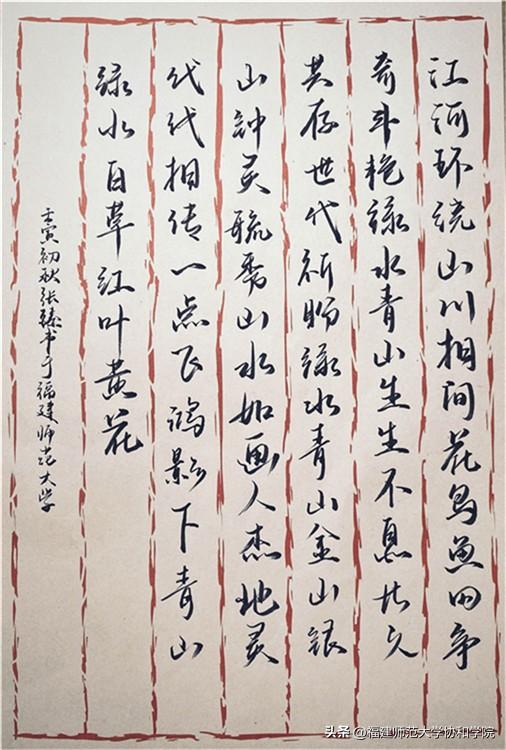 江河环绕山川相间花鸟鱼田争
奇斗艳绿水青山生生不息共久
共存世代祈盼绿水青山金山银
山钟灵毓秀山水如画人杰地灵
代代相传一点飞鸿影下青山
绿水白草红叶黄花
壬寅初秋张臻书于福建师范大学
头条@福建师范大学协和学院